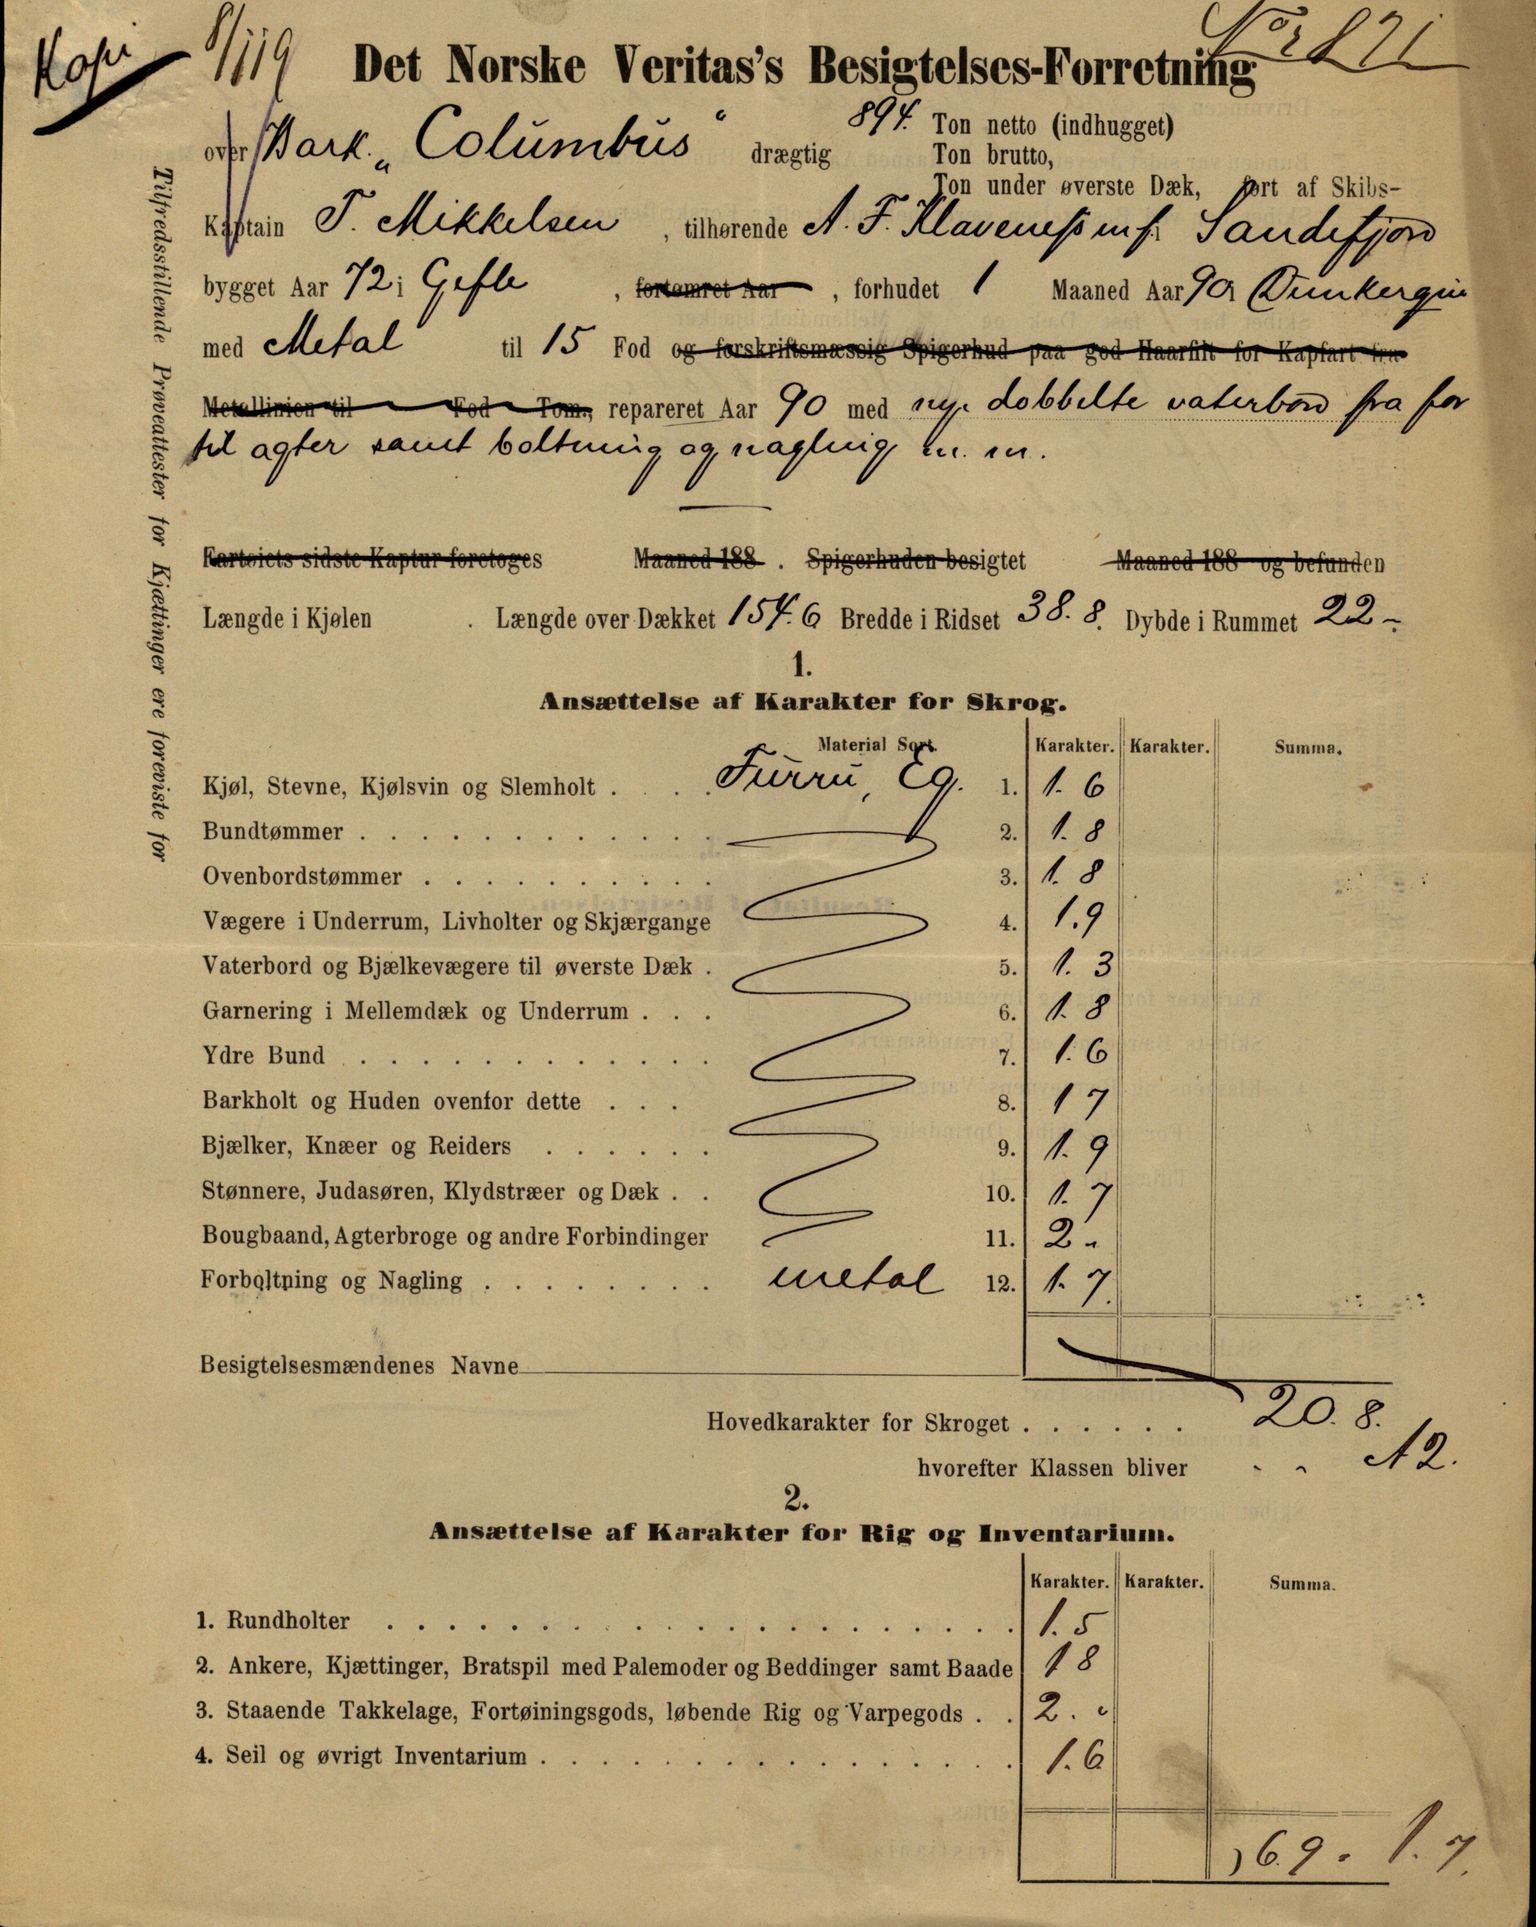 Kopi
8/119
No 2 871
Det Norske Veritas's Besigtelses-Forretning
over Bark. „Columbus“ drægtig 894. Ton netto (indhugget)
Ton brutto,
Ton under øverste Dæk, ført af Skibs-
Kaptain T. Mikkelsen, tilhørende A. F. Klaveness m fl Sandefjord
bygget Aar 72 i Gefle, fortømret Aar, forhudet 1 Maaned Aar 90 i Dunkerque
med Metal til 15 Fod og forskriftsmæssig Spigerhud paa god Haarfilt for Kapfart fra
Metallinien til Fod Tom., repareret Aar 90 med nye dobbelte vaterbord fra for
til agter samt boltning og nagling m. m.
Fartøiets sidste Kaptur foretoges Maaned 188 . Spigerhuden besigtet Maaned 188 og befunden
Længde i Kjølen . Længde over Dækket 154.6 Bredde i Ridset 38.8. Dybde i Rummet 22 -.
1.
Ansættelse af Karakter for Skrog.
Material Sort. Karakter. Karakter. Summa.
Kjøl, Stevne, Kjølsvin og Slemholt . . . . Furru, Eg. 1. 1. 6
Bundtømmer . . . . . . . . . . . . 2. 1. 8
Ovenbordstømmer . . . . . . . . . . 3. 1. 8
Vægere i Underrum, Livholter og Skjærgange 4. 1.9
Vaterbord og Bjælkevægere til øverste Dæk . 5. 1. 3
Garnering i Mellemdæk og Underrum . . . 6. 1. 8
Ydre Bund . . . . . . . . . . . . 7. 1. 6
Barkholt og Huden ovenfor dette . . . 8. 1 7
Bjælker, Knæer og Reiders . . . . . . 9. 1. 9
Stønnere, Judasøren, Klydstræer og Dæk . . 10. 1. 7
Bougbaand, Agterbroge og andre Forbindinger 11. 2 „
Forboltning og Nagling . . . . . . . . metal 12. 1. 7.
Besigtelsesmændenes Navne
Hovedkarakter for Skroget . . . . . . 20. 8.
hvorefter Klassen bliver „ „ A 2.
2.
Ansættelse af Karakter for Rig og Inventarium.
Karakter. Karakter. Summa.
1. Rundholter . . . . . . . . . . . . . . . . . . . . . 1. 5
2. Ankere, Kjættinger, Bratspil med Palemoder og Beddinger samt Baade 1 8
3. Staaende Takkelage, Fortøiningsgods, løbende Rig og Varpegods . . 2. „
4. Seil og øvrigt Inventarium . . . . . . . . . . . . . . . . 1. 6
) 6.9 . 1. 7.
Tilfredsstillende Prøveattester for Kjættinger ere foreviste for